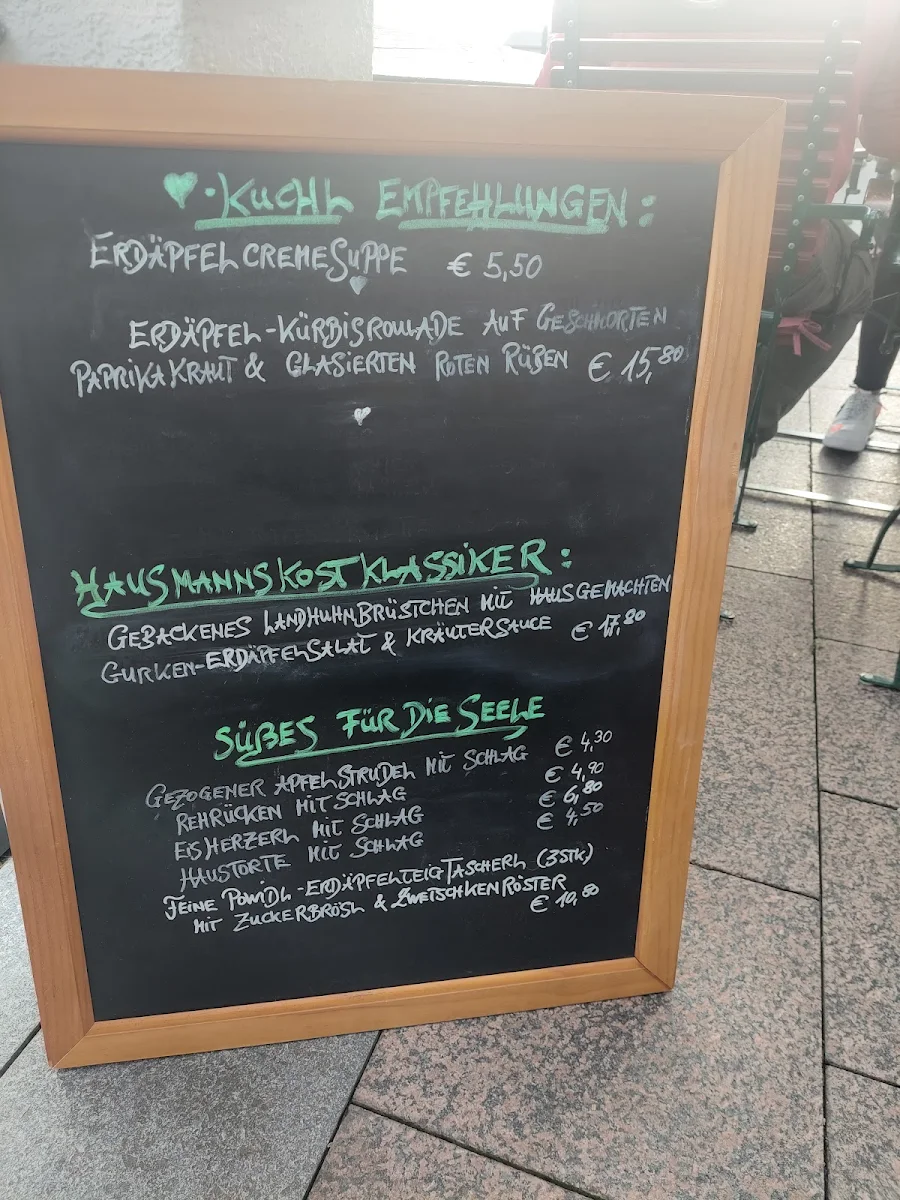 ♥·KUCHL EMPFEHLUNGEN:
ERDÄPFELCREMESUPPE € 5,50
ERDÄPFEL-KÜRBISROULADE AUF GESCHMORTEN
PAPRIKAKRAUT & GLASIERTEN ROTEN RÜBEN € 15,80
HAUSMANNSKOSTKLASSIKER:
GEBACKENES LANDHUHNBRÜSTCHEN MIT HAUSGEMACHTEN
GURKEN-ERDÄPFELSALAT & KRÄUTERSAUCE € 17,80
SÜßES FÜR DIE SEELE
GEZOGENER APFELSTRUDEL MIT SCHLAG € 4,30
REHRÜCKEN MIT SCHLAG € 4,90
EISHERZERL MIT SCHLAG € 6,80
HAUSTORTE MIT SCHLAG € 4,50
FEINE POWIDL-ERDÄPFELTEIGTASCHERL (3STK)
MIT ZUCKERBRÖSL & ZWETSCHKENRÖSTER
€ 10,80